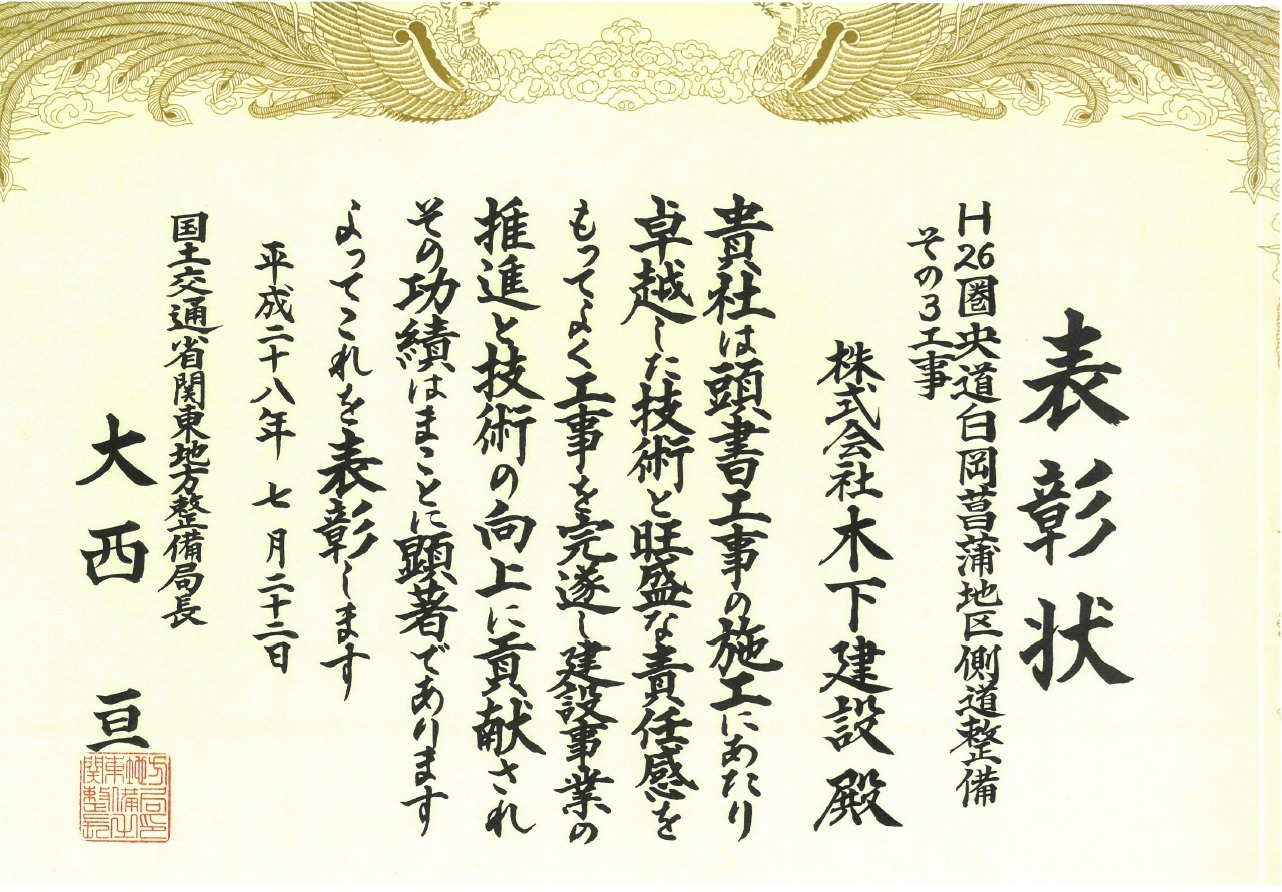 表彰状
H26圏央道白岡菖蒲地区側道整備
その3工事
株式会社木下建設殿
貴社は頭書工事の施工にあたり
卓越した技術と旺盛な責任感を
もってよく工事を完遂し建設事業の
推進と技術の向上に貢献され
その功績はまことに顕著であります
よってこれを表彰します
平成二十八年 七月二十二日
国土交通省関東地方整備局長
大西 亘